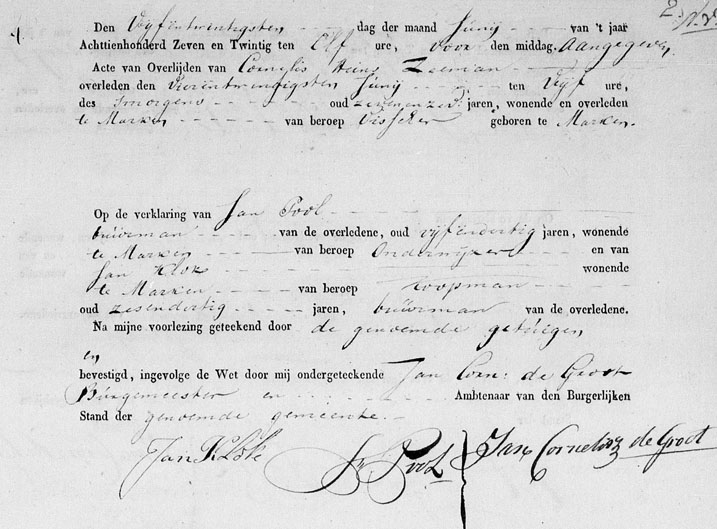 Den Vyfentwintigsten dag der maand Juny van 't jaar
Achttienhonderd Zeven en Twintig ten Elf ure, voor den middag. Aangegeven
Acte van Overlijden van Cornelis Heins Zeeman
overleden den Vierentwindigsten Juny ten Vyf ure,
des smorgens oud jaren, wonende en overleden
te Marken van beroep Visscher geboren te Marken.
Op de verklaring van Jan Pool
buurman van de overledene, oud vyfendertig jaren, wonende
te Marken van beroep Onderwyzer en van
Jan Klok wonende
te Marken van beroep Koopman
oud zesendertig jaren, buurman van de overledene.
Na mijne voorlezing geteekend door de genoemde getuigen
en
bevestigd, ingevolge de Wet door mij ondergeteekende Jan Corn: de Groot
Burgemeester en Ambtenaar van den Burgerlijken
Stand der genoemde gemeente.
Jan Klok Jn Pool Jan Cornelisz de Groot